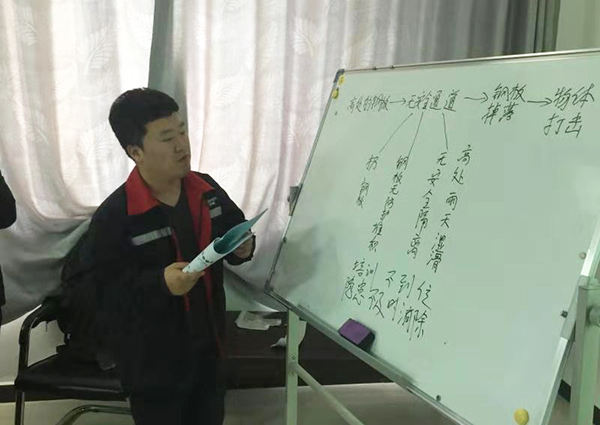 高处的钢板→无 通道→钢板→物体
掉落 打击
钢板
钢板无防护堆积
无安全隔离
高处雨天湿滑
培训不到位
隐患不及时消除